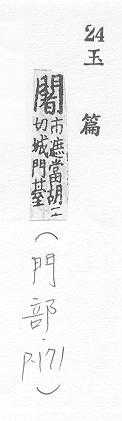 24
玉篇
闍市遮當胡二
切城門臺
(門部.
P.171)